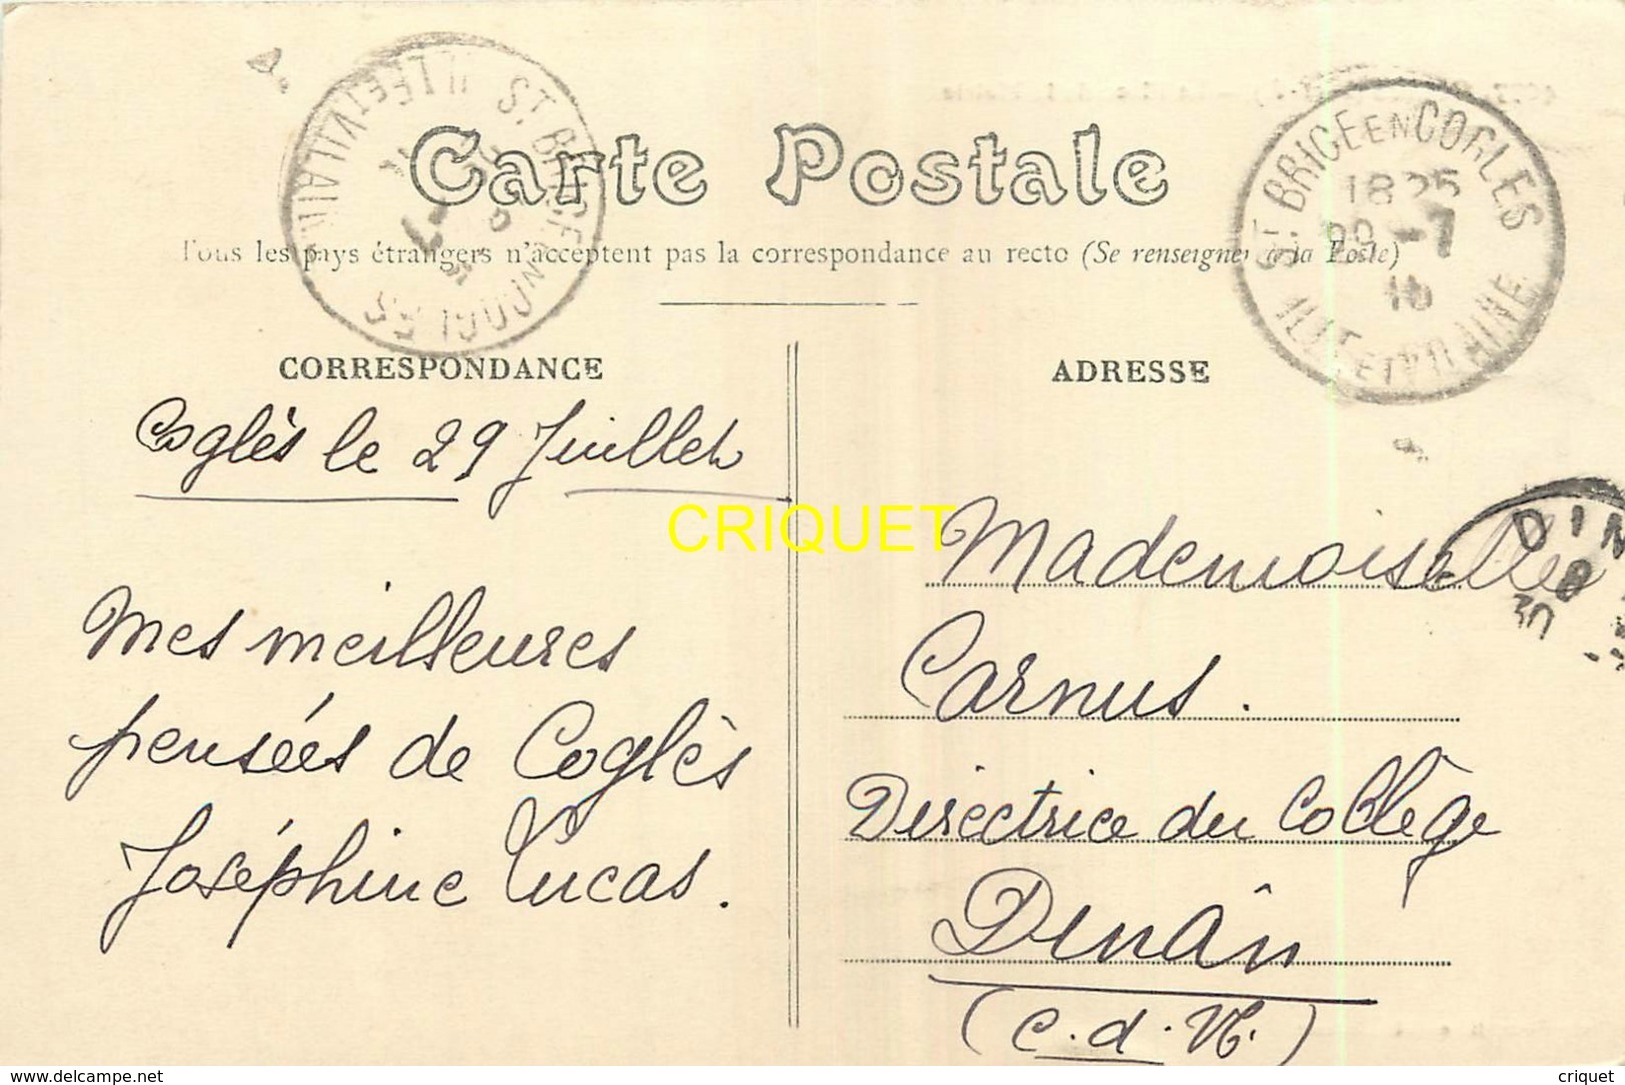 Carte Postale
Tous les pays étrangers n'acceptent pas la correspondance au recto (Se renseigner à la Poste)
ST BRICE EN COGLES
ILLE ET VILAINE
ST BRICE EN COGLES
1825
29 -7
ILLE ET VILAINE
CORRESPONDANCE
ADRESSE
Coglès le 29 Juillet
Mes meilleures
pensées de Coglès
Joséphine Lucas.
CRIQUET
Mademoiselle
Carnus.
Directrice du Collège
Dinân
(C.d.N.)
DIN
8
30
www.delcampe.net
criquet